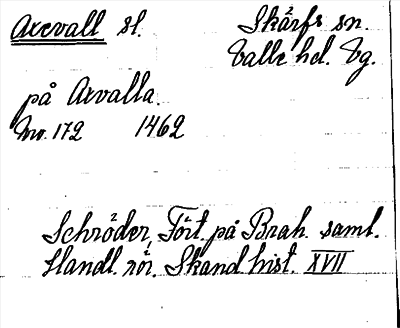 Axevall sl. Skärfs sn.
Valle hd. Vg.
på Axvalla.
No. 172 1462
Schröder, Fört. på Brah. saml.
Handl. rör. Skand hist. XVII